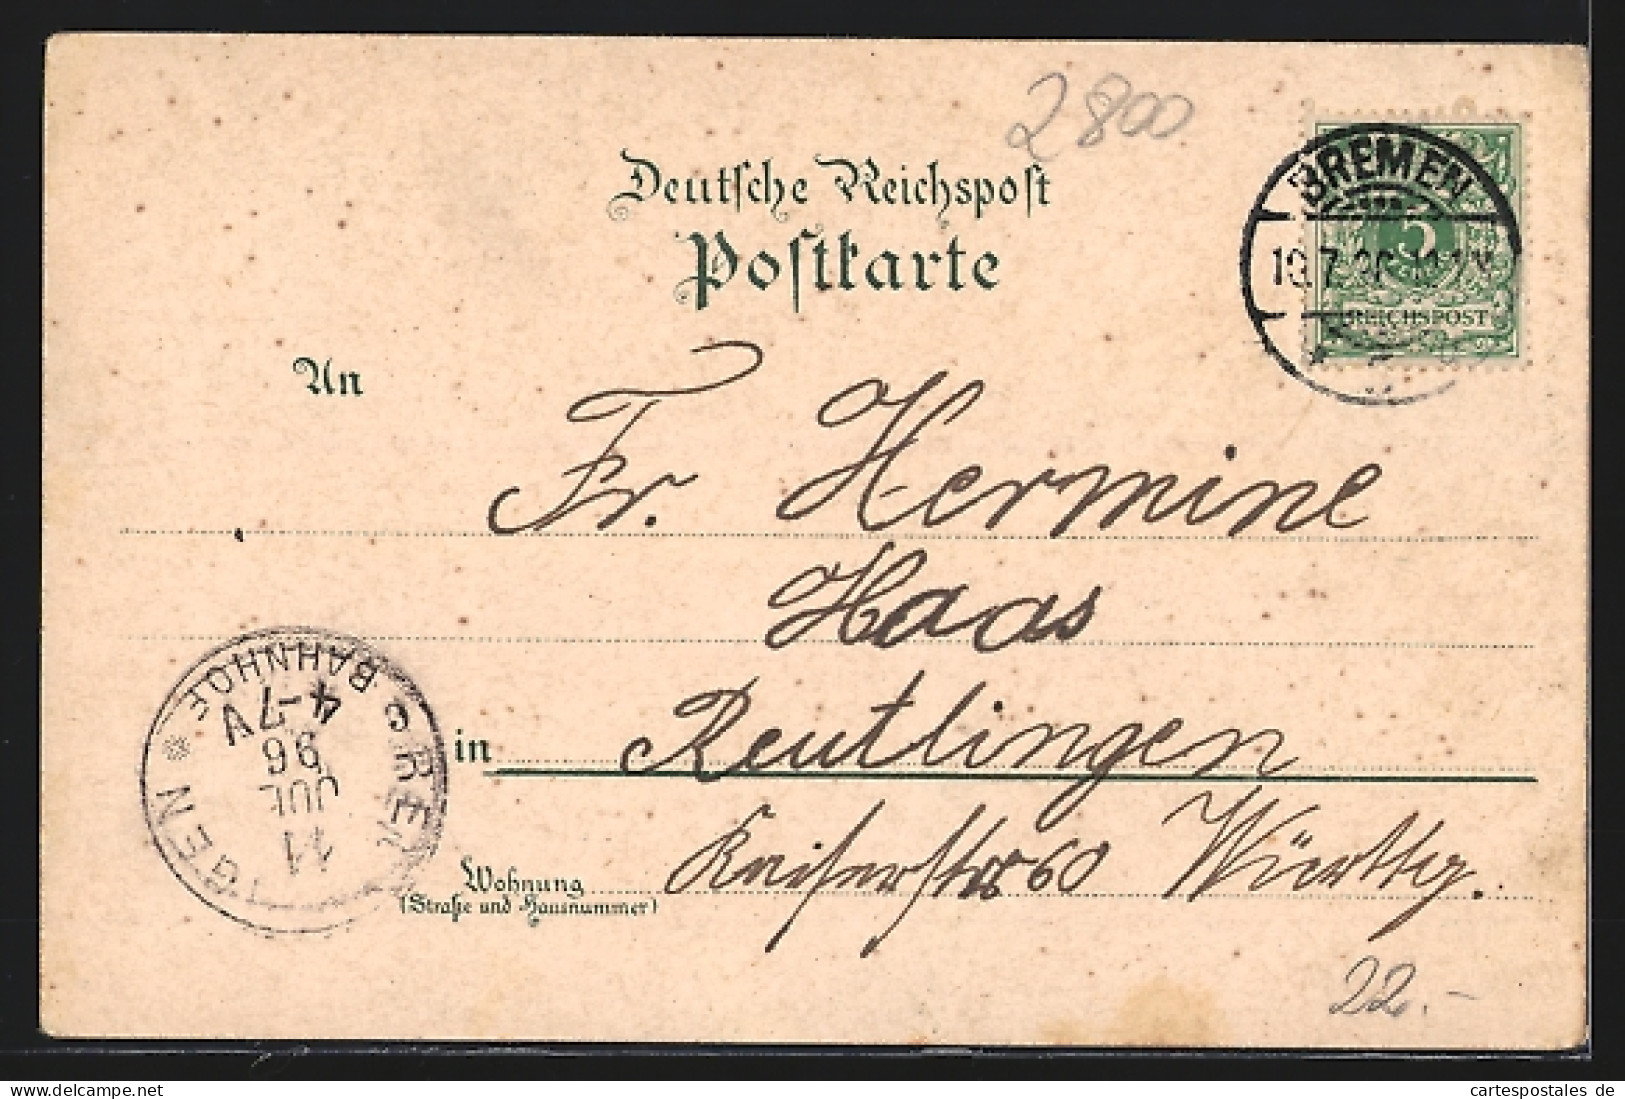 2800
Deutsche Reichspost
Postkarte
BREMEN
5
REICHSPOST
An
Fr. Hermine
Haas
in Reutlingen
Wohnung
(Straße und Hausnummer)
Kaiserstr 60 Württbg.
BAHNHOF
4-7V
96
JUL
11
22.-
delcampe.net
cartespostales de